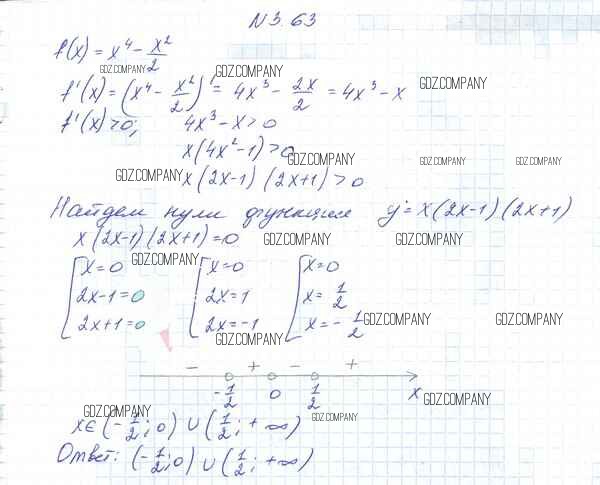 N3.63
f(x) = x⁴ - x²/2
GDZ.COMPANY GDZ.COMPANY
f'(x) = (x⁴ - x²/2)' = 4x³ - 2x/2 = 4x³ - x GDZ.COMPANY
f'(x) > 0; 4x³ - x > 0
x(4x² - 1) > 0
GDZ.COMPANY GDZ.COMPANY GDZ.COMPANY
GDZ.COMPANY x(2x-1)(2x+1) > 0
Найдем нули функции y = x(2x-1)(2x+1)
x(2x-1)(2x+1) = 0 GDZ.COMPANY GDZ.COMPANY
[x = 0 GDZ.COMPANY [x = 0 [x = 0
2x-1 = 0 2x = 1 x = 1/2
2x+1 = 0 2x = -1 x = -1/2 GDZ.COMPANY GDZ.COMPANY
GDZ.COMPANY
- + - +
-1/2 0 1/2 x GDZ.COMPANY
GDZ.COMPANY GDZ.COMPANY
x ∈ (-1/2; 0) ∪ (1/2; +∞)
Ответ: (-1/2; 0) ∪ (1/2; +∞)